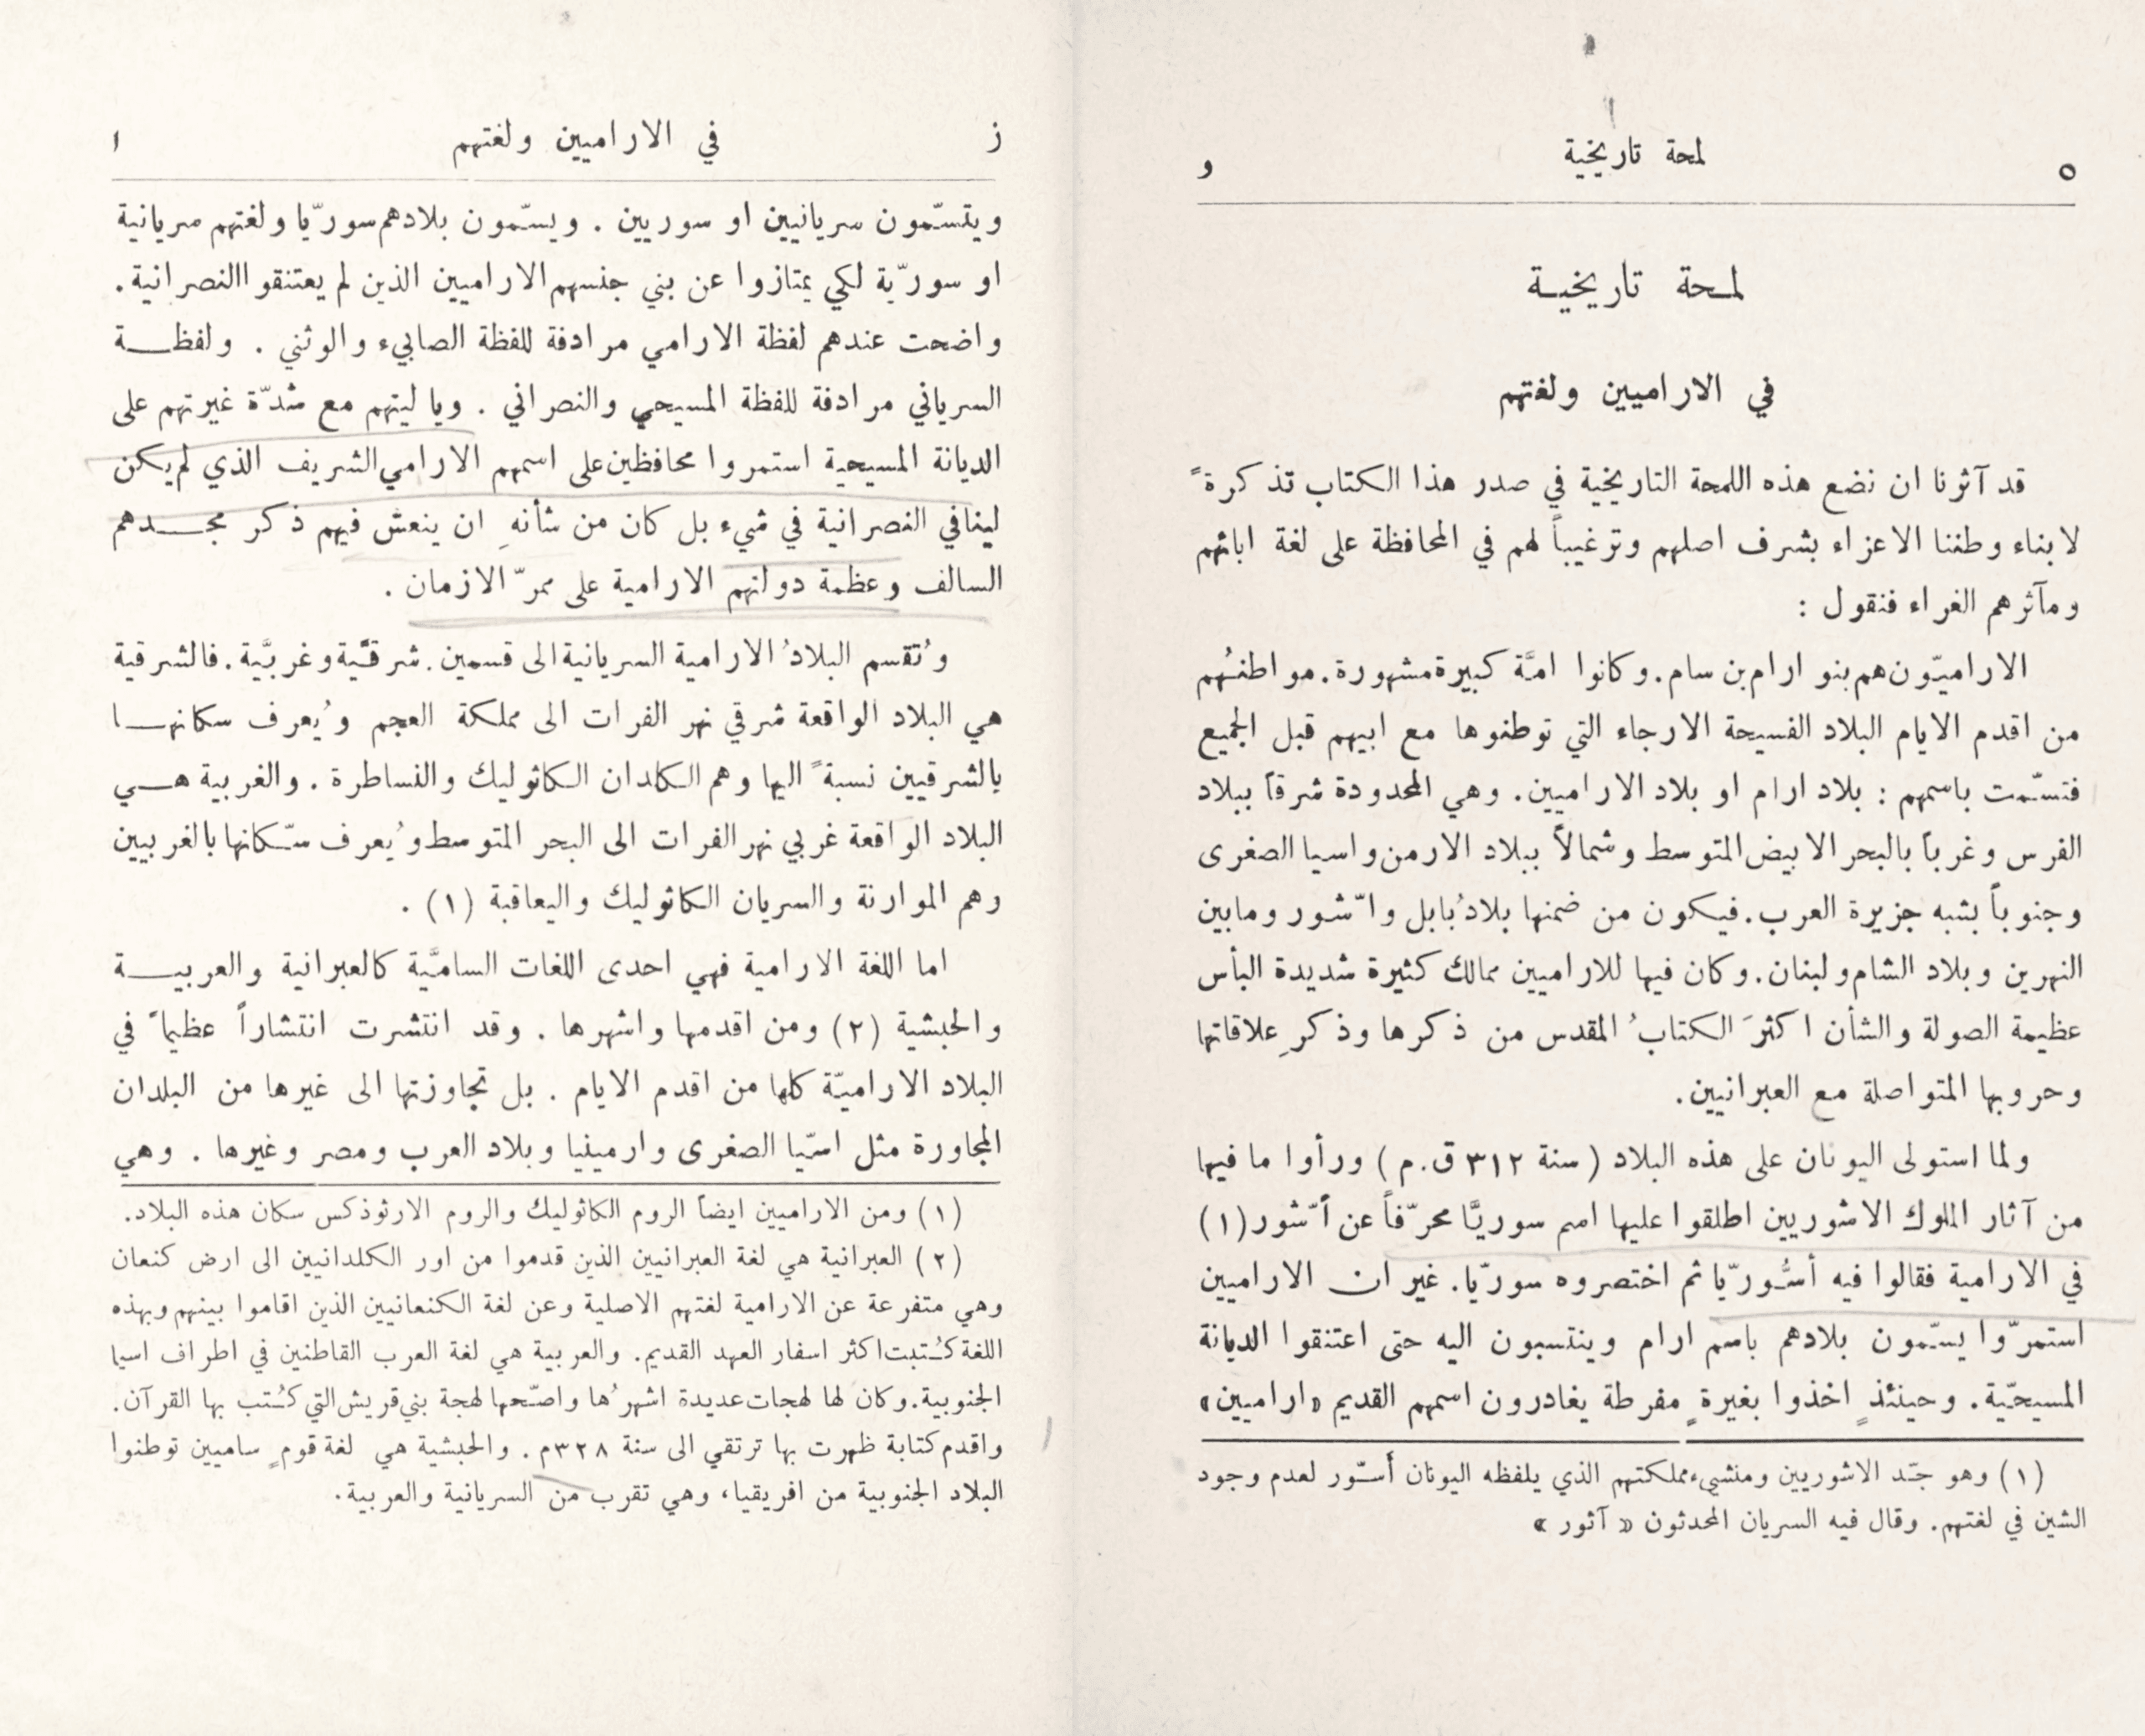 ٥ لمحة تاريخية و
لمحة تاريخية
في الاراميين ولغتهم
قد آثرنا ان نضع هذه اللمحة التاريخية في صدر هذا الكتاب تذكرةً
لابناء وطننا الاعزاء بشرف اصلهم وترغيباً لهم في المحافظة على لغة ابائهم
ومآثرهم الغراء فنقول :
الاراميّون هم بنو ارام بن سام. وكانوا امَّة كبيرة مشهورة. مواطنُهم
من اقدم الايام البلاد الفسيحة الارجاء التي توطنوها مع ابيهم قبل الجميع
فتسمّت باسمهم : بلاد ارام او بلاد الاراميين. وهي المحدودة شرقاً ببلاد
الفرس وغرباً بالبحر الابيض المتوسط وشمالاً ببلاد الارمن واسيا الصغرى
وجنوباً بشبه جزيرة العرب. فيكون من ضمنها بلادُ بابل واشّور ومابين
النهرين وبلاد الشام ولبنان. وكان فيها للاراميين ممالك كثيرة شديدة البأس
عظيمة الصولة والشأن اكثرَ الكتابُ المقدس من ذكرها وذكرِ علاقاتها
وحروبها المتواصلة مع العبرانيين.
ولما استولى اليونان على هذه البلاد ( سنة ٣١٢ ق.م ) ورأوا ما فيها
من آثار الملوك الاشوريين اطلقوا عليها اسم سوريَّا محرّفاً عن أشّور (١)
في الارامية فقالوا فيه أسُّوريّا ثم اختصروه سوريّا. غير ان الاراميين
استمرّوا يسمّون بلادهم باسم ارام وينتسبون اليه حتى اعتنقوا الديانة
المسيحيّة. وحينئذٍ اخذوا بغيرةٍ مفرطة يغادرون اسمهم القديم «اراميين»
(١) وهو جَد الاشوريين ومنشيء مملكتهم الذي يلفظه اليونان أسّور لعدم وجود
الشين في لغتهم. وقال فيه السريان المحدثون « آثور »
ز في الاراميين ولغتهم ا
ويتسمّون سريانيين او سوريين . ويسمّون بلادهم سوريّا ولغتهم سريانية
او سوريّة لكي يمتازوا عن بني جنسهم الاراميين الذين لم يعتنقوا النصرانية.
واضحت عندهم لفظة الارامي مرادفة للفظة الصابيء والوثني . ولفظة
السرياني مرادفة للفظة المسيحي والنصراني . ويا ليتهم مع شدّة غيرتهم على
الديانة المسيحية استمروا محافظين على اسمهم الارامي الشريف الذي لم يكن
لينافي النصرانية في شيء بل كان من شأنهِ ان ينعش فيهم ذكر مجدهم
السالف وعظمة دولتهم الارامية على ممرّ الازمان .
وتُقسم البلادُ الارامية السريانية الى قسمين. شرقيَّة وغربيَّة. فالشرقية
هي البلاد الواقعة شرقي نهر الفرات الى مملكة العجم ويُعرف سكانها
بالشرقيين نسبةً اليها وهم الكلدان الكاثوليك والنساطرة . والغربية هي
البلاد الواقعة غربي نهر الفرات الى البحر المتوسط ويُعرف سكّانها بالغربيين
وهم الموارنة والسريان الكاثوليك واليعاقبة (١) .
اما اللغة الارامية فهي احدى اللغات الساميَّة كالعبرانية والعربية
والحبشية (٢) ومن اقدمها واشهرها . وقد انتشرت انتشاراً عظيماً في
البلاد الاراميّة كلها من اقدم الايام . بل تجاوزتها الى غيرها من البلدان
المجاورة مثل اسيّا الصغرى وارمينيا وبلاد العرب ومصر وغيرها . وهي
(١) ومن الاراميين ايضاً الروم الكاثوليك والروم الارثوذكس سكان هذه البلاد.
(٢) العبرانية هي لغة العبرانيين الذين قدموا من اور الكلدانيين الى ارض كنعان
وهي متفرعة عن الارامية لغتهم الاصلية وعن لغة الكنعانيين الذين اقاموا بينهم وبهذه
اللغة كُتبت اكثر اسفار العهد القديم. والعربية هي لغة العرب القاطنين في اطراف اسيا
الجنوبية. وكان لها لهجات عديدة اشهرُها واصّحها لهجة بني قريش التي كُتب بها القرآن.
واقدم كتابة ظهرت بها ترتقي الى سنة ٣٢٨م . والحبشية هي لغة قومٍ ساميين توطنوا
البلاد الجنوبية من افريقيا، وهي تقرب من السريانية والعربية.